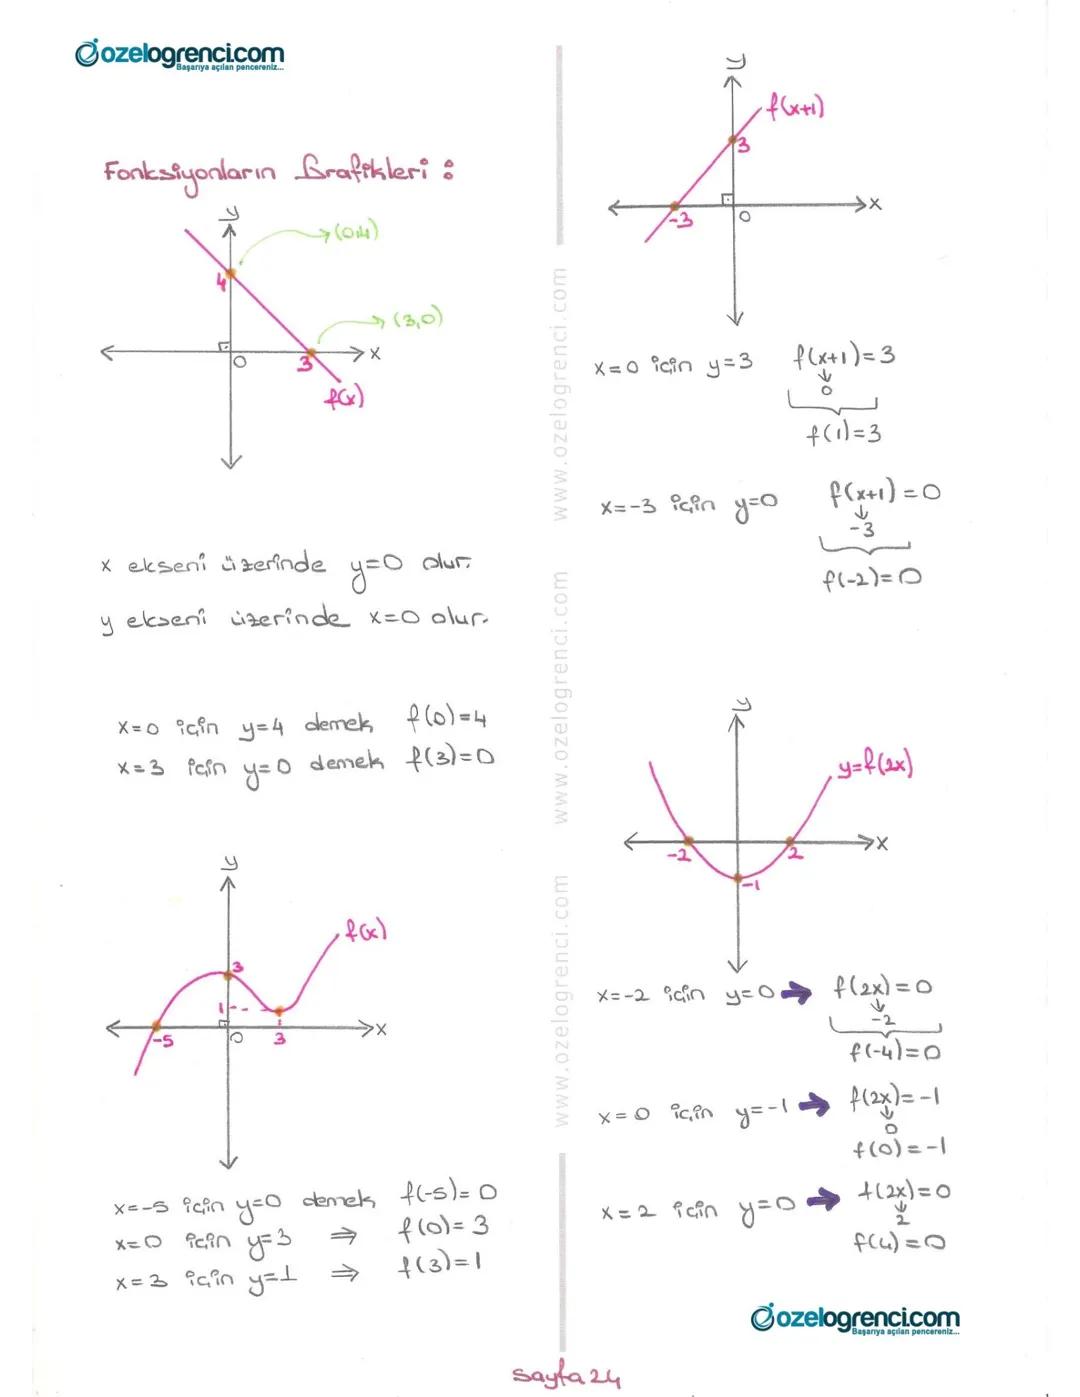 ozelogrenci.com
Başarıya açılan pencereniz...
Fonksiyonların Grafikleri :
y
(0,4)
4
(3,0)
x
0
3
f(x)
x ekseni üzerinde y=0 olur.
y ekseni üzerinde x=0 olur.
x=0 için y=4 demek f(0)=4
x=3 için y=0 demek f(3)=0
y
f(x)
3
1
x
-5
0
3
x=-5 için y=0 demek f(-5)=0
x=0 için y=3 ⇒ f(0)=3
x=3 için y=1 ⇒ f(3)=1
www.ozelogrenci.com www.ozelogrenci.com www.ozelogrenci.com
y
f(x+1)
3
x
-3
0
x=0 için y=3 f(x+1)=3
↓
0
f(1)=3
x=-3 için y=0 f(x+1)=0
↓
-3
f(-2)=0
y
y=f(2x)
x
-2
2
-1
x=-2 için y=0 ➡ f(2x)=0
↓
-2
f(-4)=0
x=0 için y=-1 ➡ f(2x)=-1
↓
0
f(0)=-1
x=2 için y=0 ➡ f(2x)=0
↓
2
f(4)=0
ozelogrenci.com
Başarıya açılan pencereniz...
sayfa 24